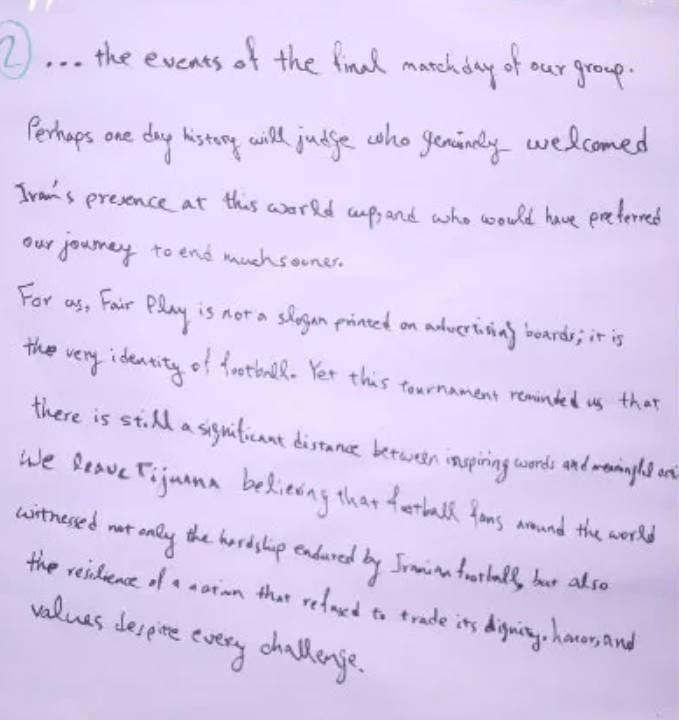 2 ... the events of the final matchday of our group.
Perhaps one day history will judge who genuinely welcomed
Iran's presence at this world cup, and who would have preferred
our journey to end much sooner.
For us, Fair Play is not a slogan printed on advertising boards; it is
the very identity of football. Yet this tournament reminded us that
there is still a significant distance between inspiring words and meaningful
We leave Tijuana believing that football fans around the world
witnessed not only the hardship endured by Iranian football, but also
the resilience of a nation that refused to trade its dignity, honor, and
values despite every challenge.